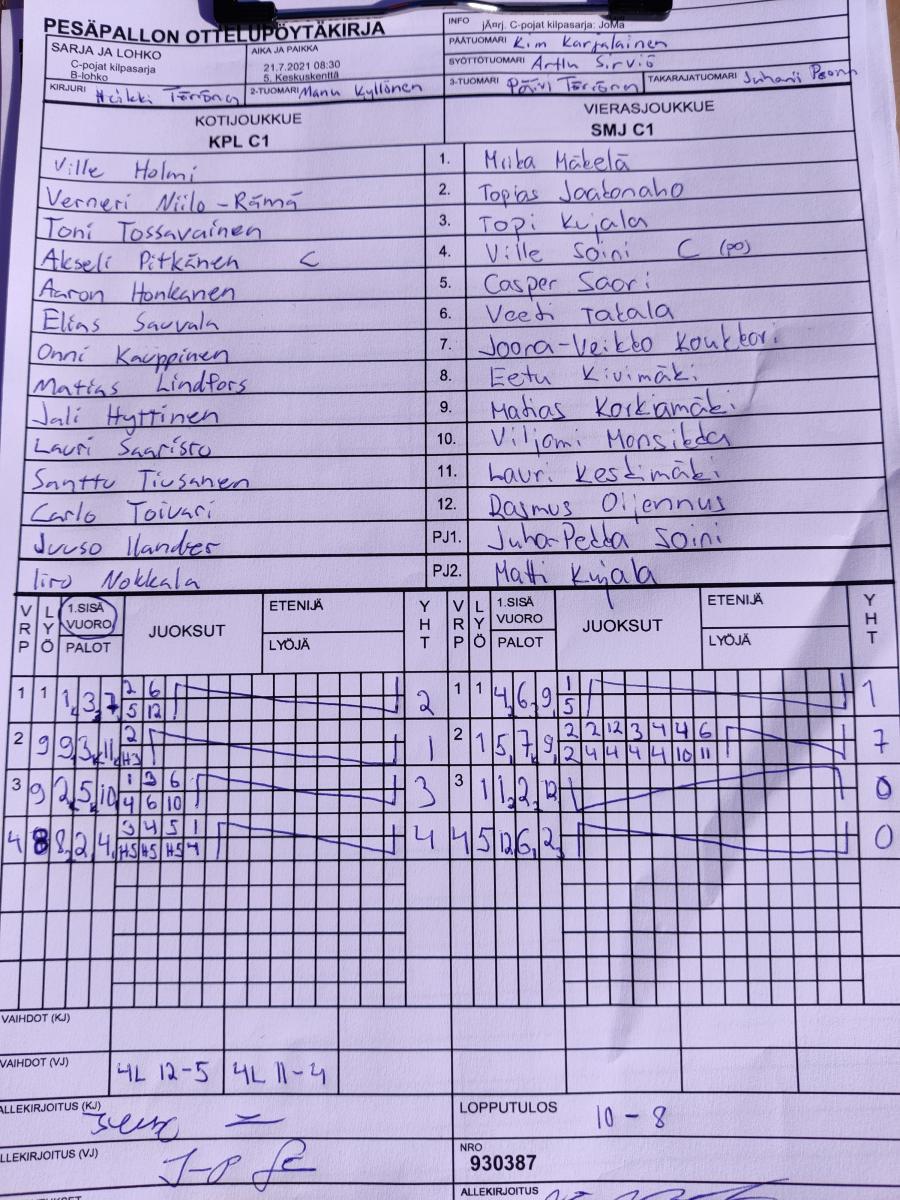 PESÄPALLON OTTELUPÖYTÄKIRJA
INFO jÄrj. C-pojat kilpasarja: JoMa
SARJA JA LOHKO
C-pojat kilpasarja
B-lohko
AIKA JA PAIKKA
21.7.2021 08:30
5. Keskuskenttä
PÄÄTUOMARI Kim Karjalainen
SYÖTTÖTUOMARI Arttu Sirviö
KIRJURI Heikki Törönen
2-TUOMARI Manu Kyllönen
3-TUOMARI Päivi Törönen
TAKARAJATUOMARI Juhani
KOTIJOUKKUE
KPL C1
VIERASJOUKKUE
SMJ C1
Ville Holmi 1. Miika Mäkelä
Verneri Niilo-Rämä 2. Topias Jaakonaho
Toni Tossavainen 3. Topi Kujala
Akseli Pitkänen C 4. Ville Soini C (po)
Aaron Honkanen 5. Casper Saari
Elias Sauvala 6. Veeti Takala
Onni Kauppinen 7. Joora-Veikko
Matias Lindfors 8. Eetu Kivimäki
Jali Hyttinen 9. Matias Korkiamäki
Lauri Saaristo 10. Viljami
Santtu Tiusanen 11. Lauri Keskimäki
Carlo Toivari 12. Rasmus Oijennus
Juuso Ilander PJ1. Juha-Pekka Soini
Iiro Nokkala PJ2. Matti Kujala
VRP LYÖ 1.SISÄ VUORO PALOT JUOKSUT ETENIJÄ LYÖJÄ YHT VRP LYÖ 1.SISÄ VUORO PALOT JUOKSUT ETENIJÄ LYÖJÄ YHT
1 1 1, 3, 7, 2 6 2 1 1 4, 6, 9, 1 1
5 12 5
2 9 9, 3, 11, 2 1 2 1 5, 7, 9, 2 2 12 3 4 4 6 7
H3 2 4 4 4 4 10 11
3 9 2, 5, 10 1 3 6 3 3 1 1, 2, 12 0
4 6 10
4 8 8, 2, 4, 3 4 5 1 4 4 5 12, 6, 2, 0
H5 H5 H5 4
VAIHDOT (KJ)
VAIHDOT (VJ) 4L 12-5 4L 11-4
ALLEKIRJOITUS (KJ)
LOPPUTULOS 10 - 8
ALLEKIRJOITUS (VJ)
NRO
930387
ALLEKIRJOITUS